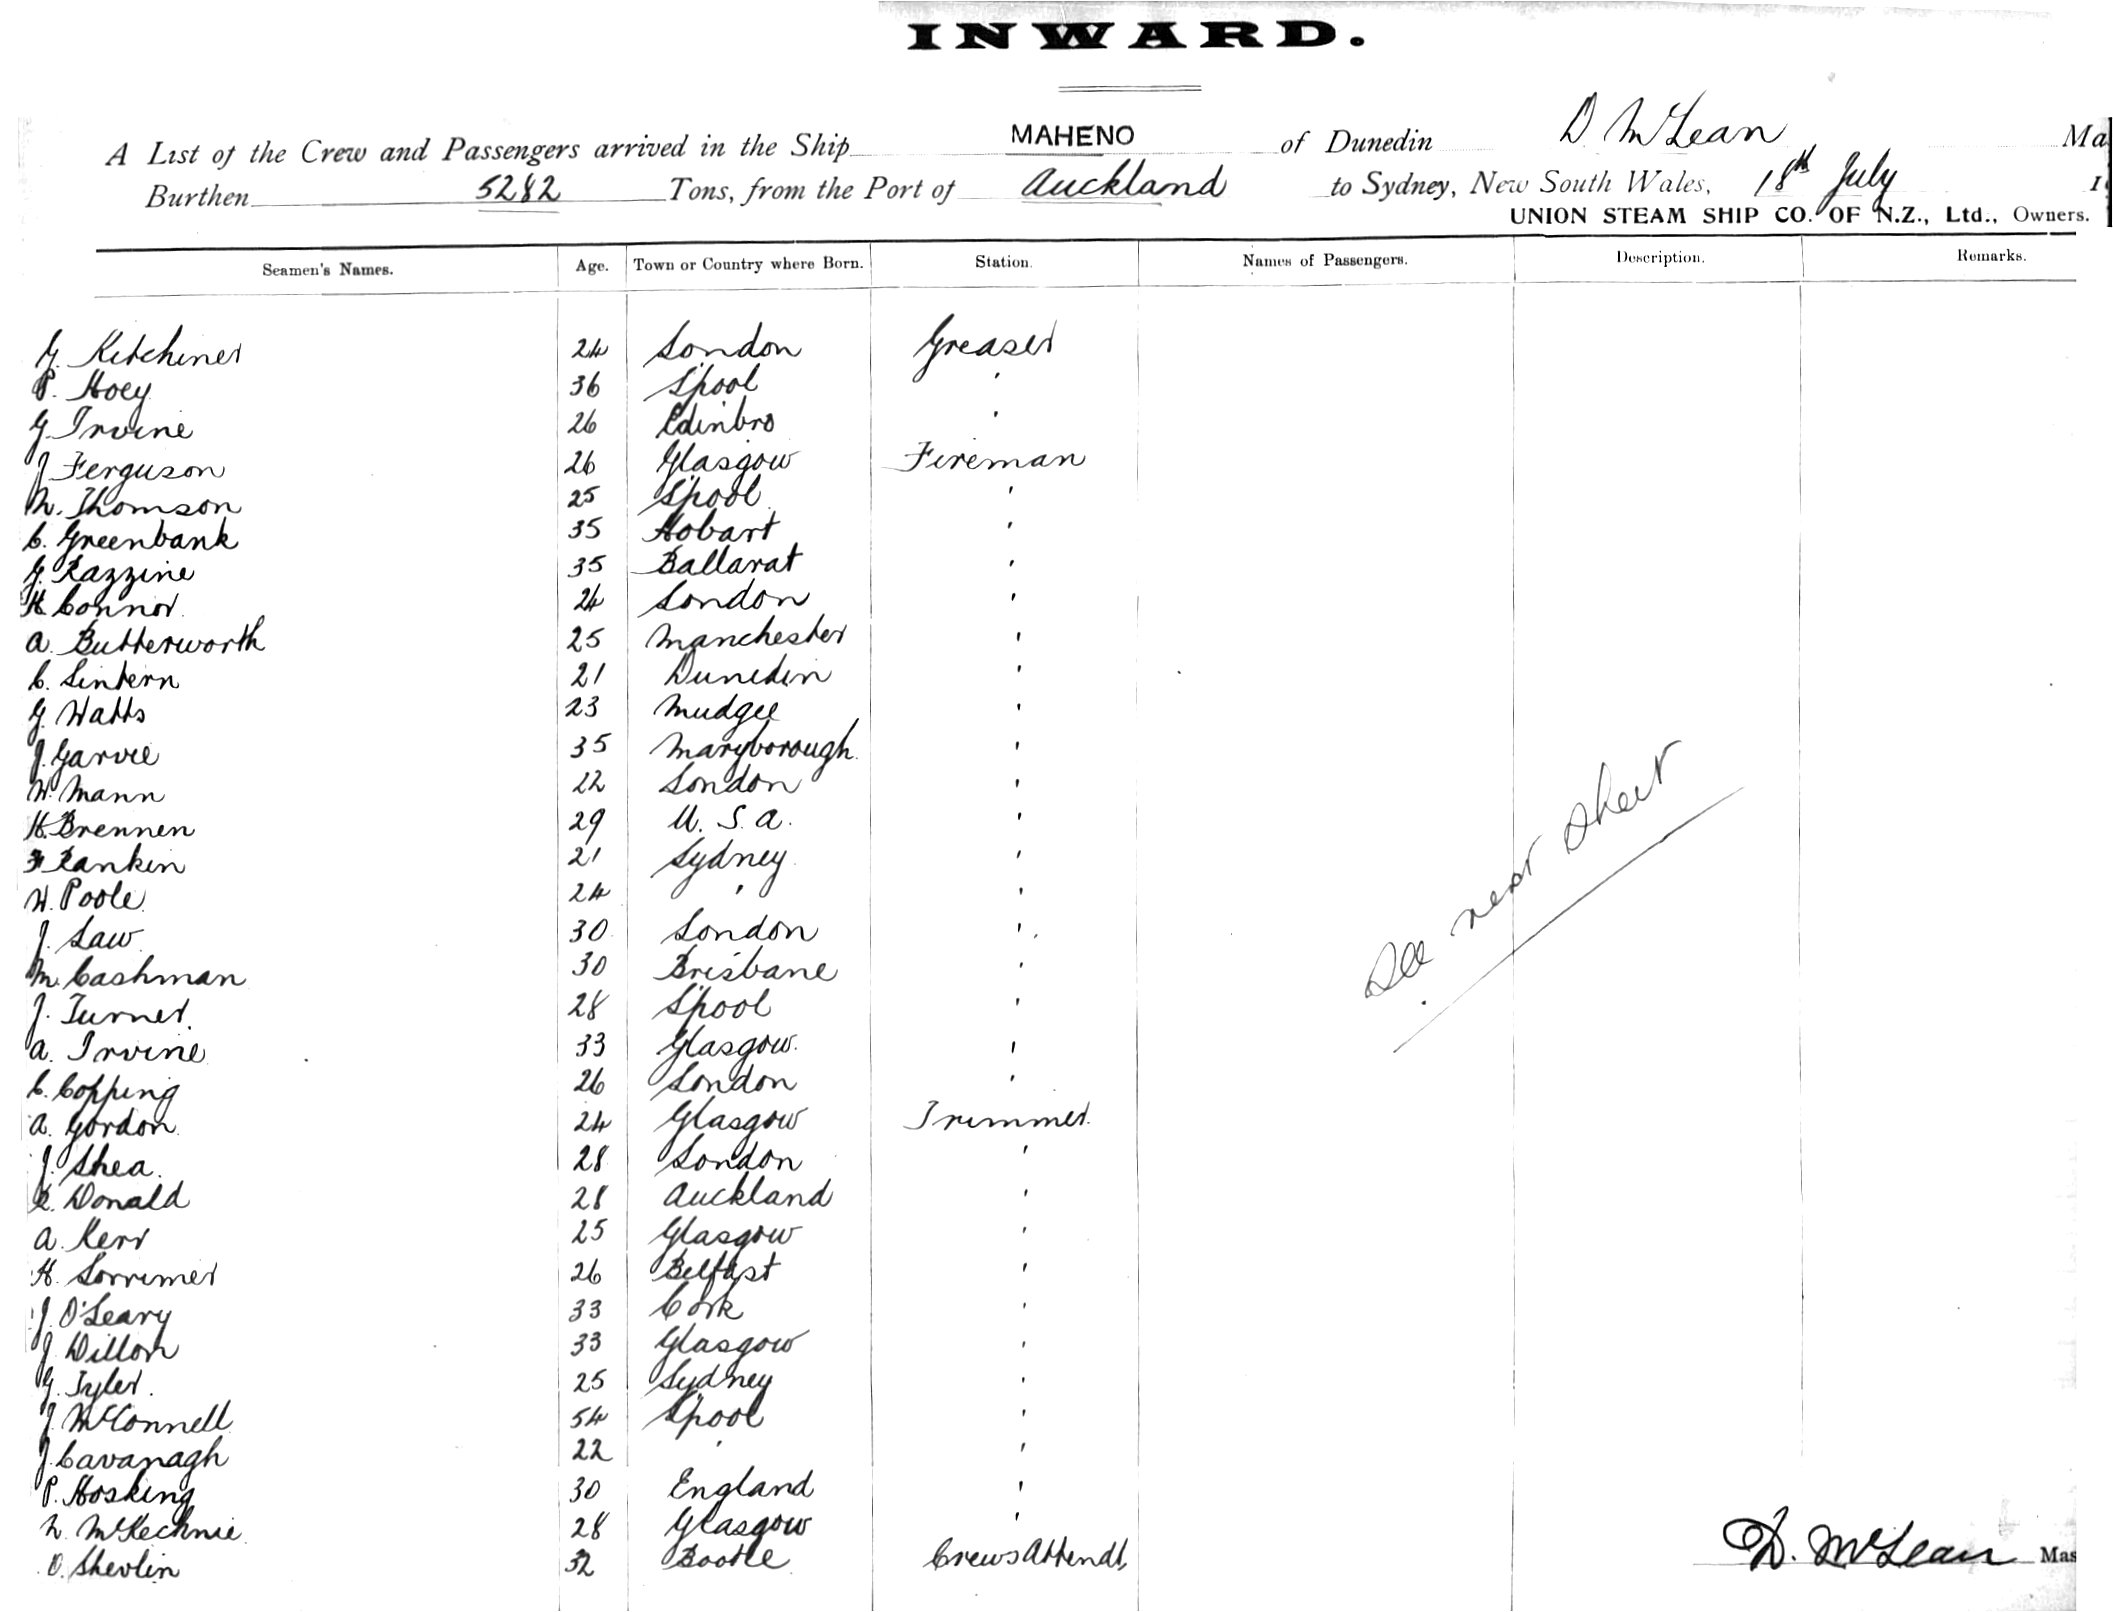 INWARD.
A List of the Crew and Passengers arrived in the Ship MAHENO of Dunedin D McLean Ma
Burthen 5282 Tons, from the Port of Auckland to Sydney, New South Wales, 18th July 1
UNION STEAM SHIP CO. OF N.Z., Ltd., Owners.
Seamen's Names. Age. Town or Country where Born. Station. Names of Passengers. Description. Remarks.
G. Kitchiner 24 London Greaser
P. Hoey 36 L'pool '
G. Irvine 26 Edinbro '
J Ferguson 26 Glasgow Fireman
Thomson 25 L'pool '
C. Greenbank 35 Hobart '
G. Razzine 35 Ballarat '
H Connor. 24 London '
A. Butterworth 25 Manchester '
C. Sintern 21 Dunedin '
G Watts 23 Mudgee '
J. Garvie 35 Maryborough. '
W. Mann 22 London '
H. Brennen 29 U. S. A. '
Rankin 21 Sydney '
W. Poole 24 ' '
J. Law 30 London '
M. Cashman 30 Brisbane '
J. Turner. 28 L'pool '
A. Irvine 33 Glasgow. '
C. Copping 26 London '
A. Gordon 24 Glasgow Trimmer.
J. Shea. 28 London '
R. Donald 28 Auckland '
A. Kerr 25 Glasgow '
H. Lorrimer 26 Belfast '
J. O'Leary 33 Cork '
J. Dillon 33 Glasgow '
G. Tyler. 25 Sydney '
J. McConnell 54 L'pool '
J. Cavanagh 22 ' '
P. Hosking 30 England '
McKechnie 28 Glasgow '
O. Shevlin 32 Bootle Crews Attendt.
See next sheet
D. McLean Mas